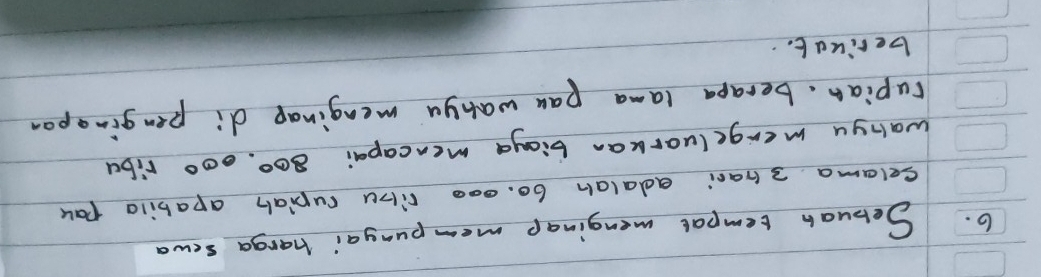 6. Sebuah tempat menginap mempunyai harga sewa
selama 3 hari adalah 60.000 ribu rupiah apabila pak
wahyu mengeluarkan biaya mencapai 800.000 ribu
rupiah. berapa lama pak wahyu menginap di penginapan
berikut.